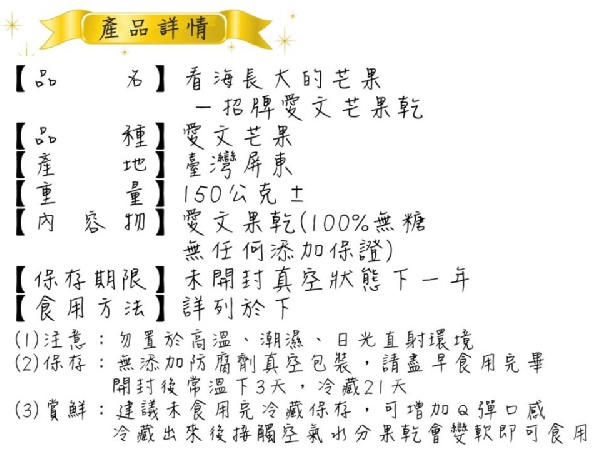 產品詳情
【品名】看海長大的芒果
－招牌愛文芒果乾
【品種】愛文芒果
【產地】臺灣屏東
【重量】150公克±
【內容物】愛文果乾(100%無糖
無任何添加保證)
【保存期限】未開封真空狀態下一年
【食用方法】詳列於下
(1)注意：勿置於高溫、潮濕、日光直射環境
(2)保存：無添加防腐劑真空包裝，請盡早食用完畢
開封後常溫下3天，冷藏21天
(3)賞鮮：建議未食用完冷藏保存，可增加Q彈口感
冷藏出來後接觸空氣水分果乾會變軟即可食用